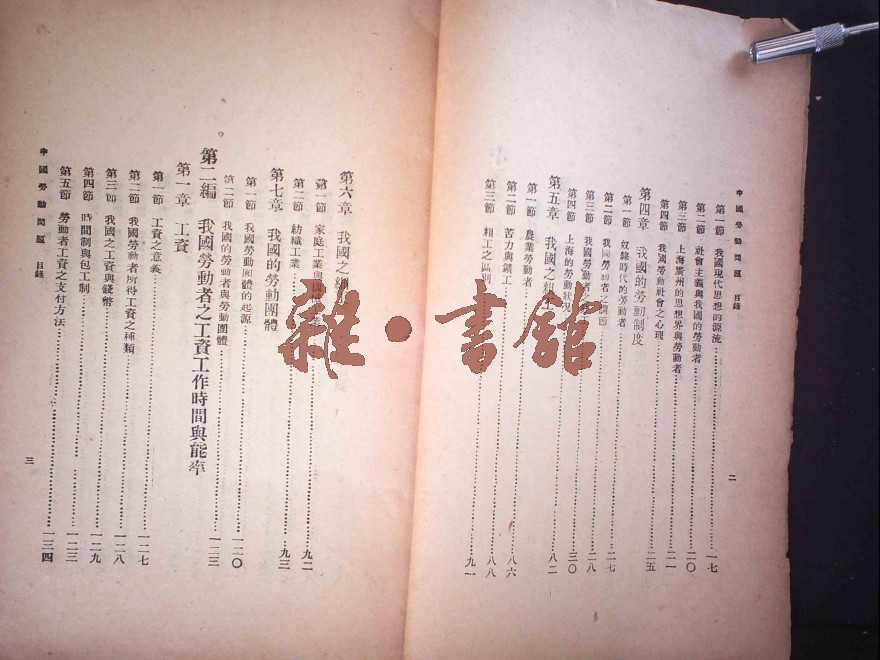 中國勞動問題 目錄
第一節 我國現代思想的源流 一七
第二節 社會主義與我國的勞動者 二〇
第三節 上海廣州的思想界與勞動者 二一
第四節 我國勞動社會之心理
第四章 我國的勞動制度 二五
第一節 奴隸時代的勞動者
第二節 我國勞動者之 二七
第三節 我國勞動者 二八
第四節 上海的勞動狀況 三〇
第五章 我國之粗工 八二
第一節 農業勞動者
第二節 苦力與鑛工 八六
第三節 粗工之區別 八八
九一
二
第六章 我國之
第一節 家庭工業與 九二
第二節 紡織工業 九三
第七章 我國的勞動團體
第一節 我國勞動團體的起源 一二〇
第二節 我國的勞動者與勞動團體 一二三
第二編 我國勞動者之工資工作時間與能率
第一章 工資
第一節 工資之意義 一二七
第二節 我國勞動者所得工資之種類
第三節 我國之工資與錢幣 一二八
第四節 時間制與包工制 一二九
第五節 勞動者工資之支付方法 一三四
中國勞動問題 目錄
三
雜·書館